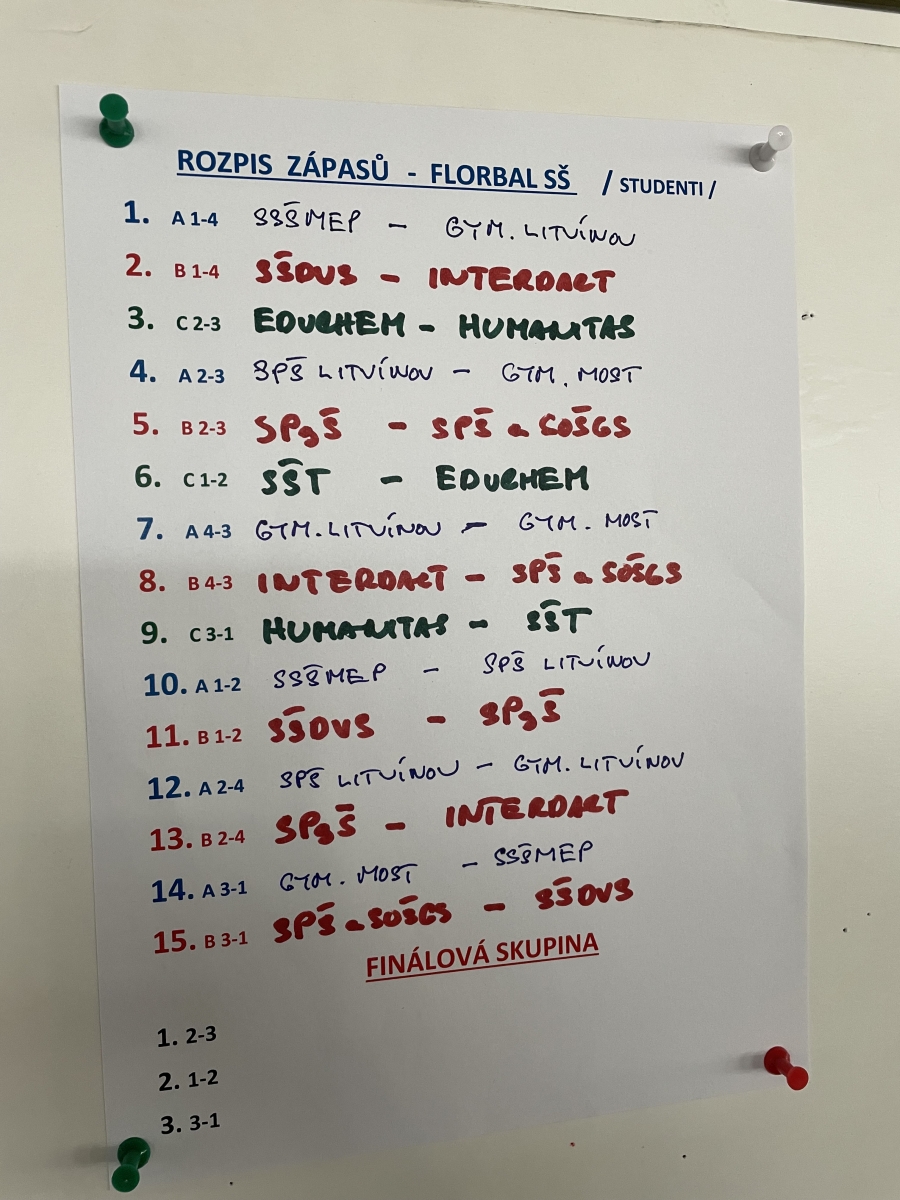 ROZPIS ZÁPASŮ - FLORBAL SŠ / STUDENTI /
1. A 1-4 SSŠMEP - GYM. LITVÍNOV
2. B 1-4 SŠDVS - INTERDACT
3. C 2-3 EDUCHEM - HUMANITAS
4. A 2-3 SPŠ LITVÍNOV - GYM. MOST
5. B 2-3 SPgŠ - SPŠ a SOŠGS
6. C 1-2 SŠT - EDUCHEM
7. A 4-3 GYM. LITVÍNOV - GYM. MOST
8. B 4-3 INTERDACT - SPŠ a SOŠGS
9. C 3-1 HUMANITAS - SŠT
10. A 1-2 SSŠMEP - SPŠ LITVÍNOV
11. B 1-2 SŠDVS - SPgŠ
12. A 2-4 SPŠ LITVÍNOV - GYM. LITVÍNOV
13. B 2-4 SPgŠ - INTERDACT
14. A 3-1 GYM. MOST - SSŠMEP
15. B 3-1 SPŠ a SOŠGS - SŠDVS
FINÁLOVÁ SKUPINA
1. 2-3
2. 1-2
3. 3-1